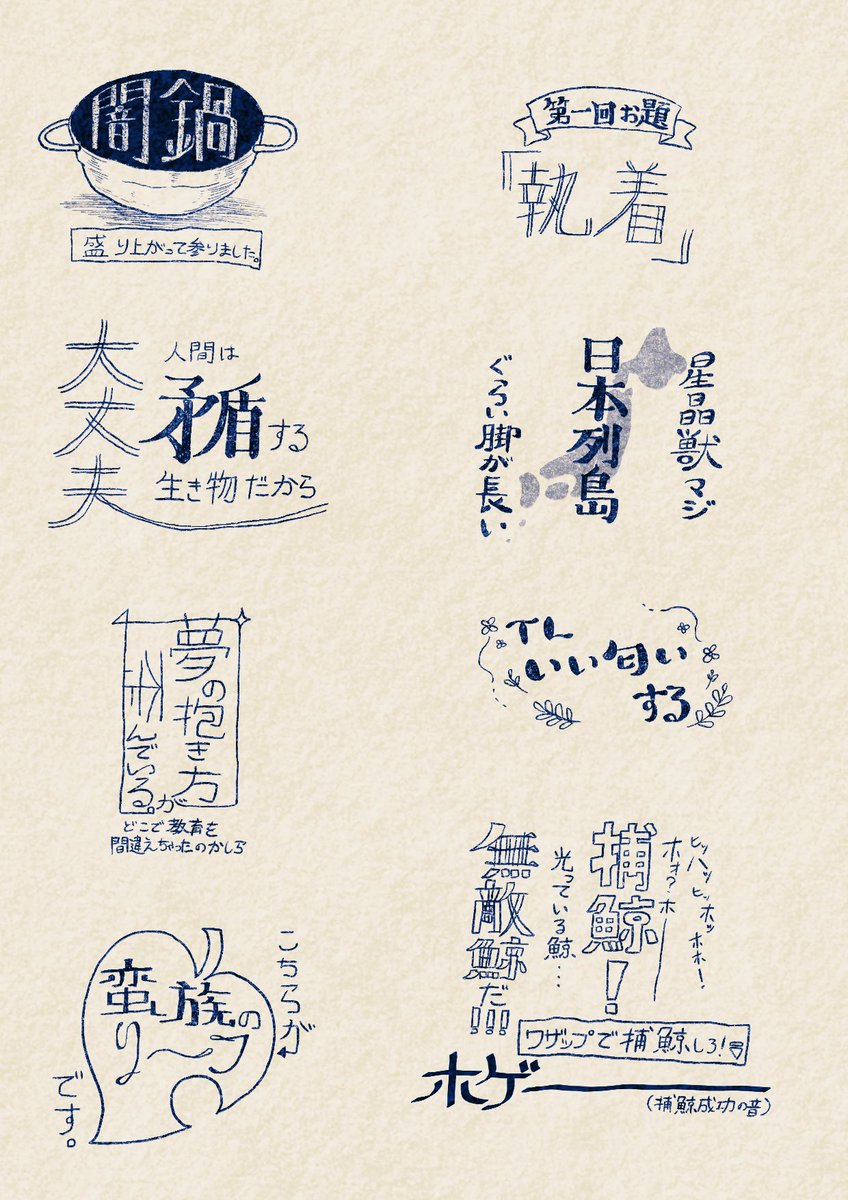 闇鍋
盛り上がって参りました。
第一回お題
「執着」
大丈夫
人間は
矛盾する
生き物だから
星晶獣マジ
日本列島
ぐらい脚が長い
夢の抱き方が
歪んでいる。
どこで教育を
間違えちゃったのかしら
TL
いい匂い
する
こちらが
蛮族の
リ〜フ
です。
ヒッハッヒッホッホホー!
ホォ?ホー
捕鯨!
光っている鯨…
無敵鯨だ!!!
ワザップで捕鯨しろ!
ホゲー
(捕鯨成功の音)